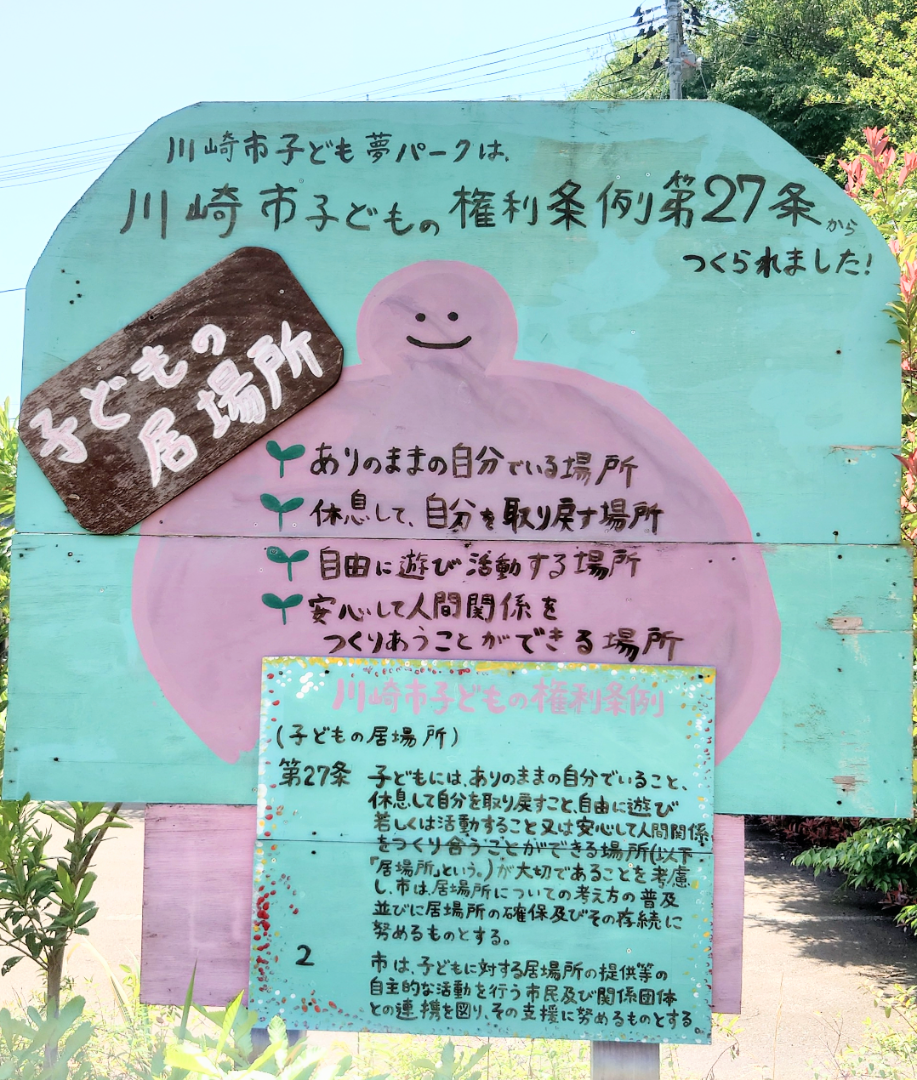 川崎市子ども夢パークは、
川崎市子どもの権利条例第27条から
つくられました!
子どもの
居場所
ありのままの自分でいる場所
休息して、自分を取り戻す場所
自由に遊び活動する場所
安心して人間関係を
つくりあうことができる場所
川崎市子どもの権利条例
(子どもの居場所)
第27条 子どもには、ありのままの自分でいること、
休息して自分を取り戻すこと、自由に遊び
若しくは活動すること又は安心して人間関係
をつくり合うことができる場所(以下
「居場所」という。)が大切であることを考慮
し、市は、居場所についての考え方の普及
並びに居場所の確保及びその存続に
努めるものとする。
2 市は、子どもに対する居場所の提供等の
自主的な活動を行う市民及び関係団体
との連携を図り、その支援に努めるものとする。